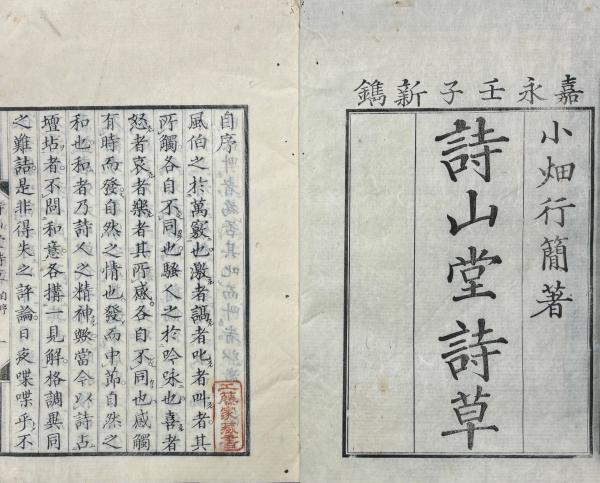 嘉永壬子新鐫
小畑行簡著
詩山堂詩草
自序
風伯之於萬竅也激者謞者叱者叫者其
所觸各自不同也騷人之於吟咏也喜者
怒者哀者樂者其所感各自不同也感觸
有時而發自然之情也發而中節自然之
和也和者乃詩人之精神歟當今以詩占
壇坫者不関和意各構一見解格調異同
之難詰是非得失之評論日夜喋喋乎不
工藤家藏書